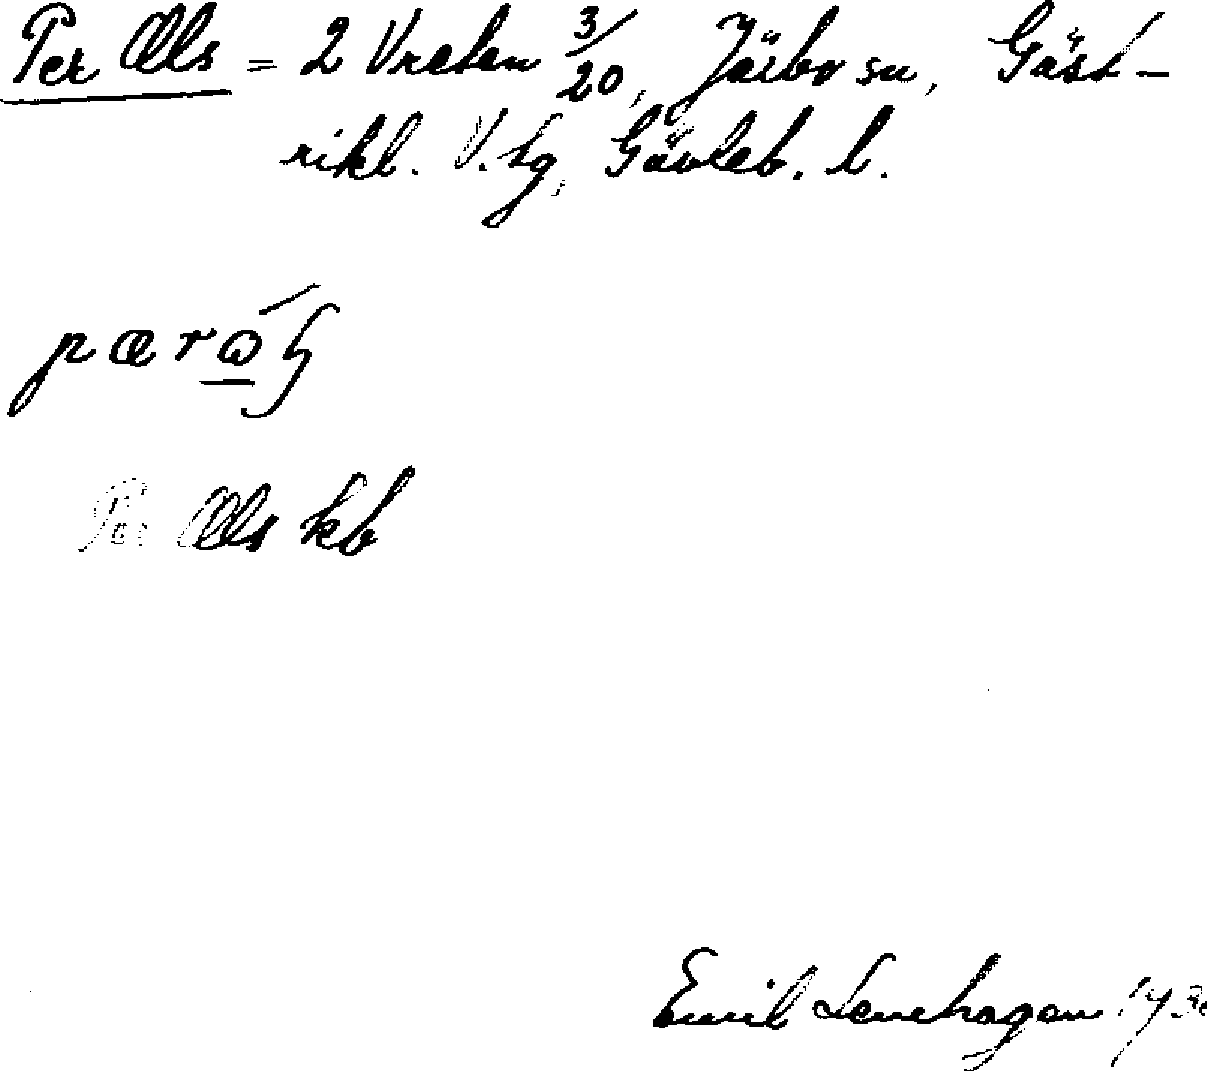 Per Ols = 2 Vreten 3/20, Järbo sn, Gäst-
rikl. V. tg, Gävleb. l.
Per Ols kb
Emil Levehagen 193